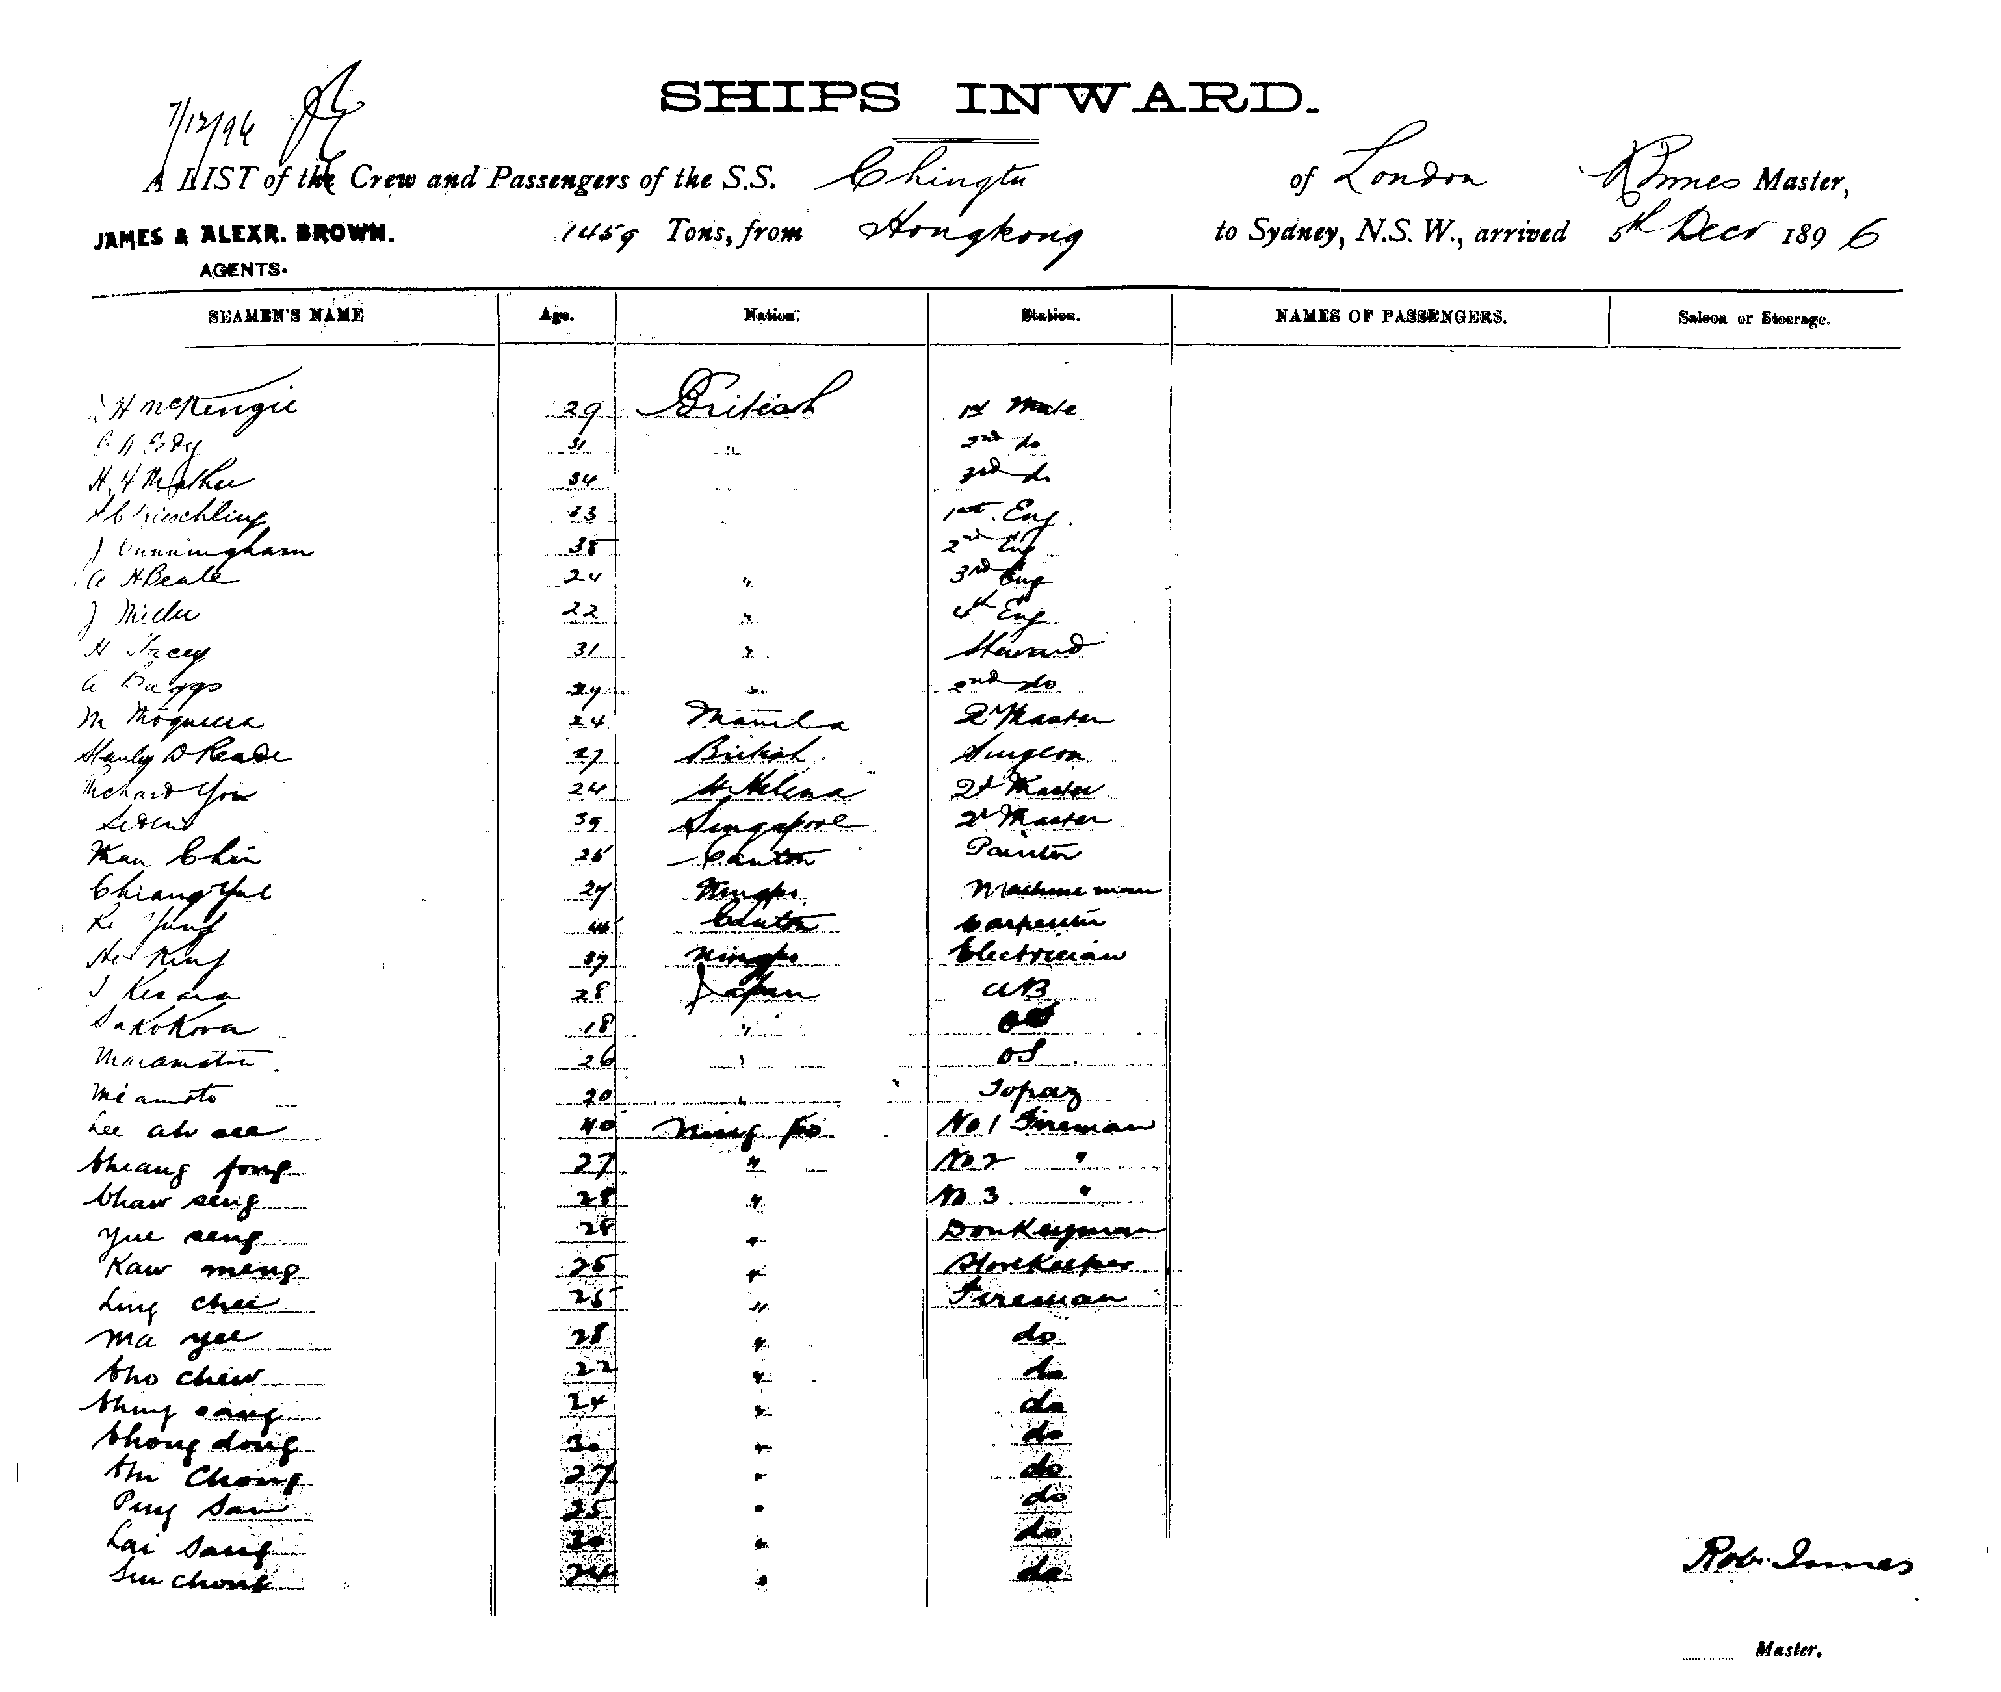 SHIPS INWARD.
7/12/96
A LIST of the Crew and Passengers of the S.S. Chingtu of London R Innes Master,
JAMES & ALEXR. BROWN. 1459 Tons, from Hongkong to Sydney, N.S.W., arrived 5th Decr 1896
AGENTS.
SEAMEN'S NAME Age. Nation. Station. NAMES OF PASSENGERS. Saloon or Steerage.
H McKenzie 29 British 1st Mate
31 " 2nd do
H. H 34 3rd do
33 1st. Eng.
J Cunningham 38 2nd Eng
A H Beale 24 " 3rd Eng
J 22 " 4th Eng
H 31 " Steward
A Baggs 29 " 2nd do
M 24 Manila Qr Master
Stanly D Reade 27 British Surgeon
Richard You 24 St Helena Qr Master
39 Singapore Qr Master
Man Chin 25 Canton Painter
Chiang Yue 27 Ningpo Machine man
Le Yung Canton Carpenter
King 37 Ningpo Electrician
28 Japan AB
Sakokova 18 "
26 " OS
Miamoto 20 " Topaz
Lee ah see 40 Ning po No 1 Fireman
Cheang fong 27 " No 2 "
Chaw seng 28 " No 3 "
Yue seng 28 " Donkeyman
Kaw meng 25 " Storekeeper
Ling chee 25 " Fireman
Ma yee 28 " do
Cho chew 22 " do
Ching sang 24 " do
Chong dong 30 " do
Chu Chong 27 " do
Ping San 25 " do
Lai Sang 30 " do
Chonk 24 " do
Rob. Innes
Master.